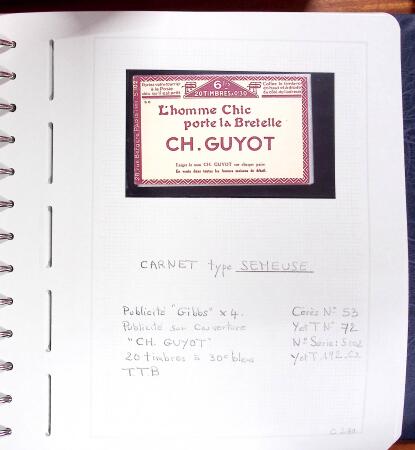 6
20 TIMBRES à 0'30
L'homme Chic
porte la Bretelle
CH. GUYOT
Exiger le nom CH. GUYOT sur chaque paire
En vente dans toutes les bonnes maisons de détail.
CARNET type SEMEUSE
Publicité "Gibbs" x 4. Cérès N° 53
Publicité sur couverture Y et T N° 72
"CH. GUYOT" N° Série:
20 timbres à 30c bleu Y et T 192
TTB